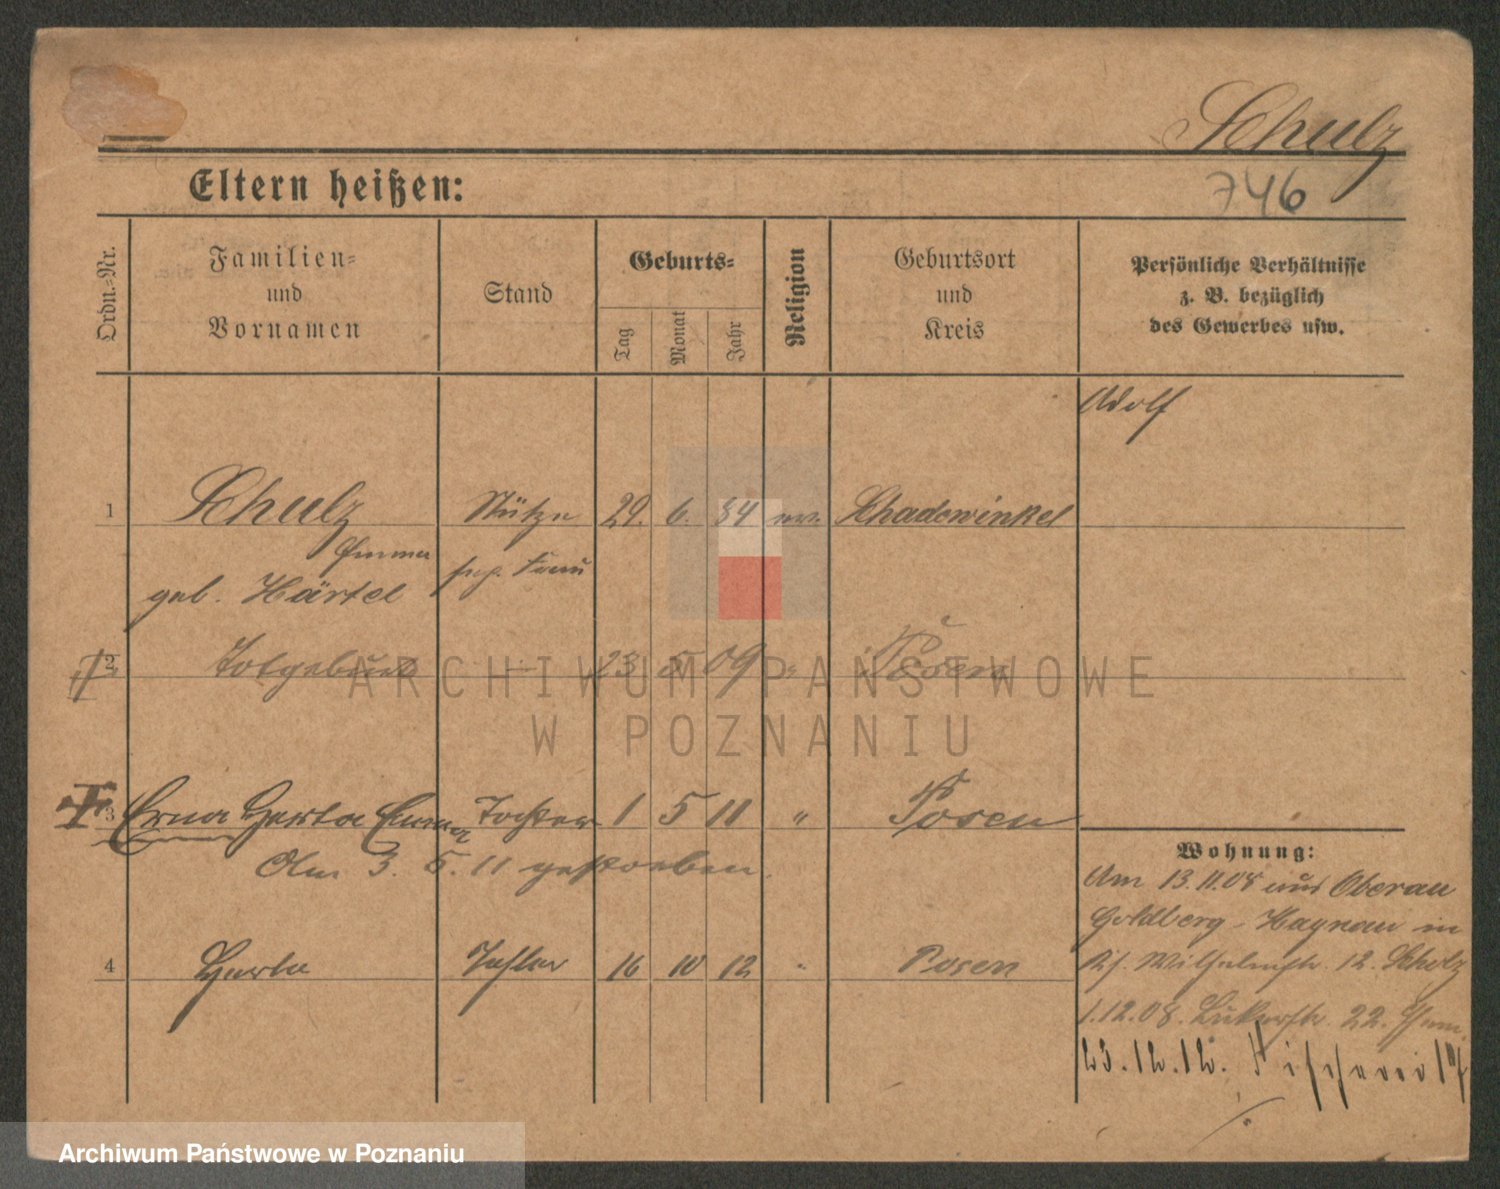 Schulz
Eltern heißen:
746
Ordn.-Nr.
Familien-
und
Vornamen
Stand
Geburts-
Tag
Monat
Jahr
Religion
Geburtsort
und
Kreis
Persönliche Verhältnisse
z. B. bezüglich
des Gewerbes usw.
Adolf
1 Schulz Stütze 29. 6. 84 ev. Schadewinkel
Emma
geb. Härtel Frau
2 Totgeburt — 23 5 09 " Posen
3 Erna Herta Emma Tochter 1 5 11 " Posen
Am 3. 5. 11 gestorben.
4 Herta Tochter 16 10 12 " Posen
Wohnung:
Am 13.11.08 aus Oberau
Goldberg-Haynau in
Wilhelmstr. 12. Scholz
1.12.08. 22.
23.12.12. Fischerei 17
ARCHIWUM PAŃSTWOWE
W POZNANIU
Archiwum Państwowe w Poznaniu